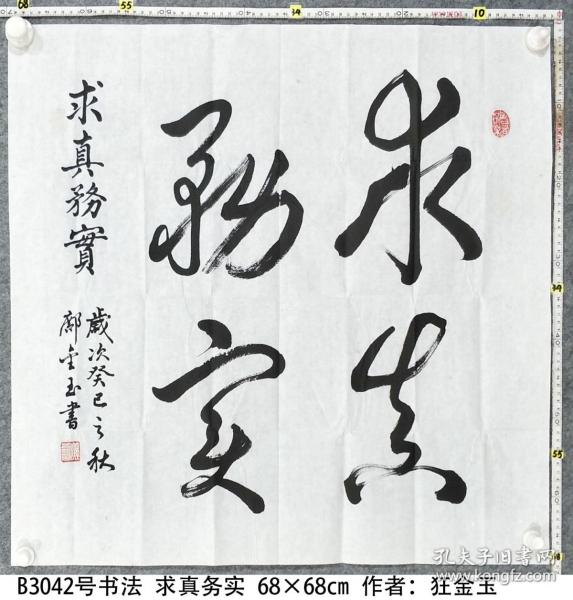 求真
務实
求真務實
歲次癸巳之秋
鄺金玉書
孔夫子旧书网
B3042号书法 求真务实 68×68cm 作者: 狂金玉